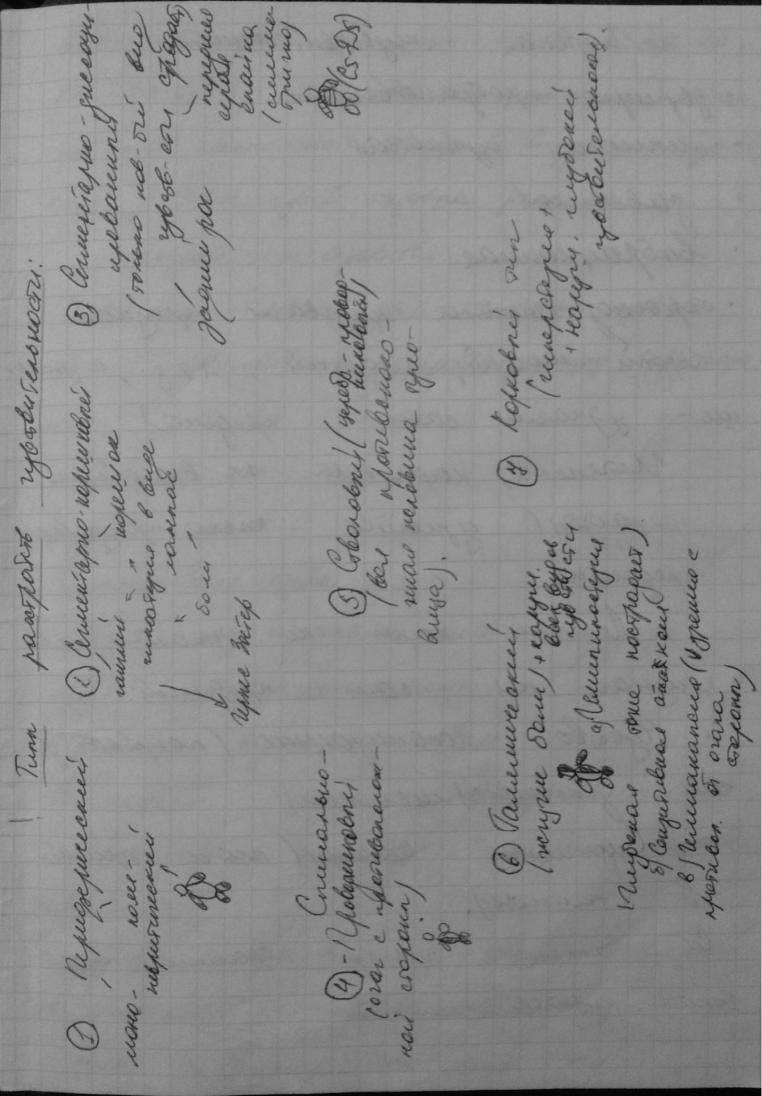 Типы расстройств чувствительности:
① Периферический
моно- поли-
невритический
② Сегментарно-корешковый
ганглий корешок
гипестезия в виде
лампас
"боли"
Герпес Зостер
③ Сегментарно-диссоции-
рованный
(только пов-тый вид
чувств-сти страдает)
Задний рог
передняя
серая
спайка
(C5-D8)
Спинально-
④ -Проводниковый
(очаг с противополож-
ной стороны)
⑤ Стволовый (церебр.-провод-
никовый)
(вся противополо-
жная половина туло-
вища).
⑥ Таламический
(жгучие боли) + наруш.
всех видов
чув-сти
а) Гемигипестезия
(глубокая тоже пострадает)
б) Сенситивная атаксия
в) Гемианопсия (утрение с
противоп. от очага
стороны)
⑦ Корковый тип
(гиперстезия +
+ наруш. глубокой
чувствительности).